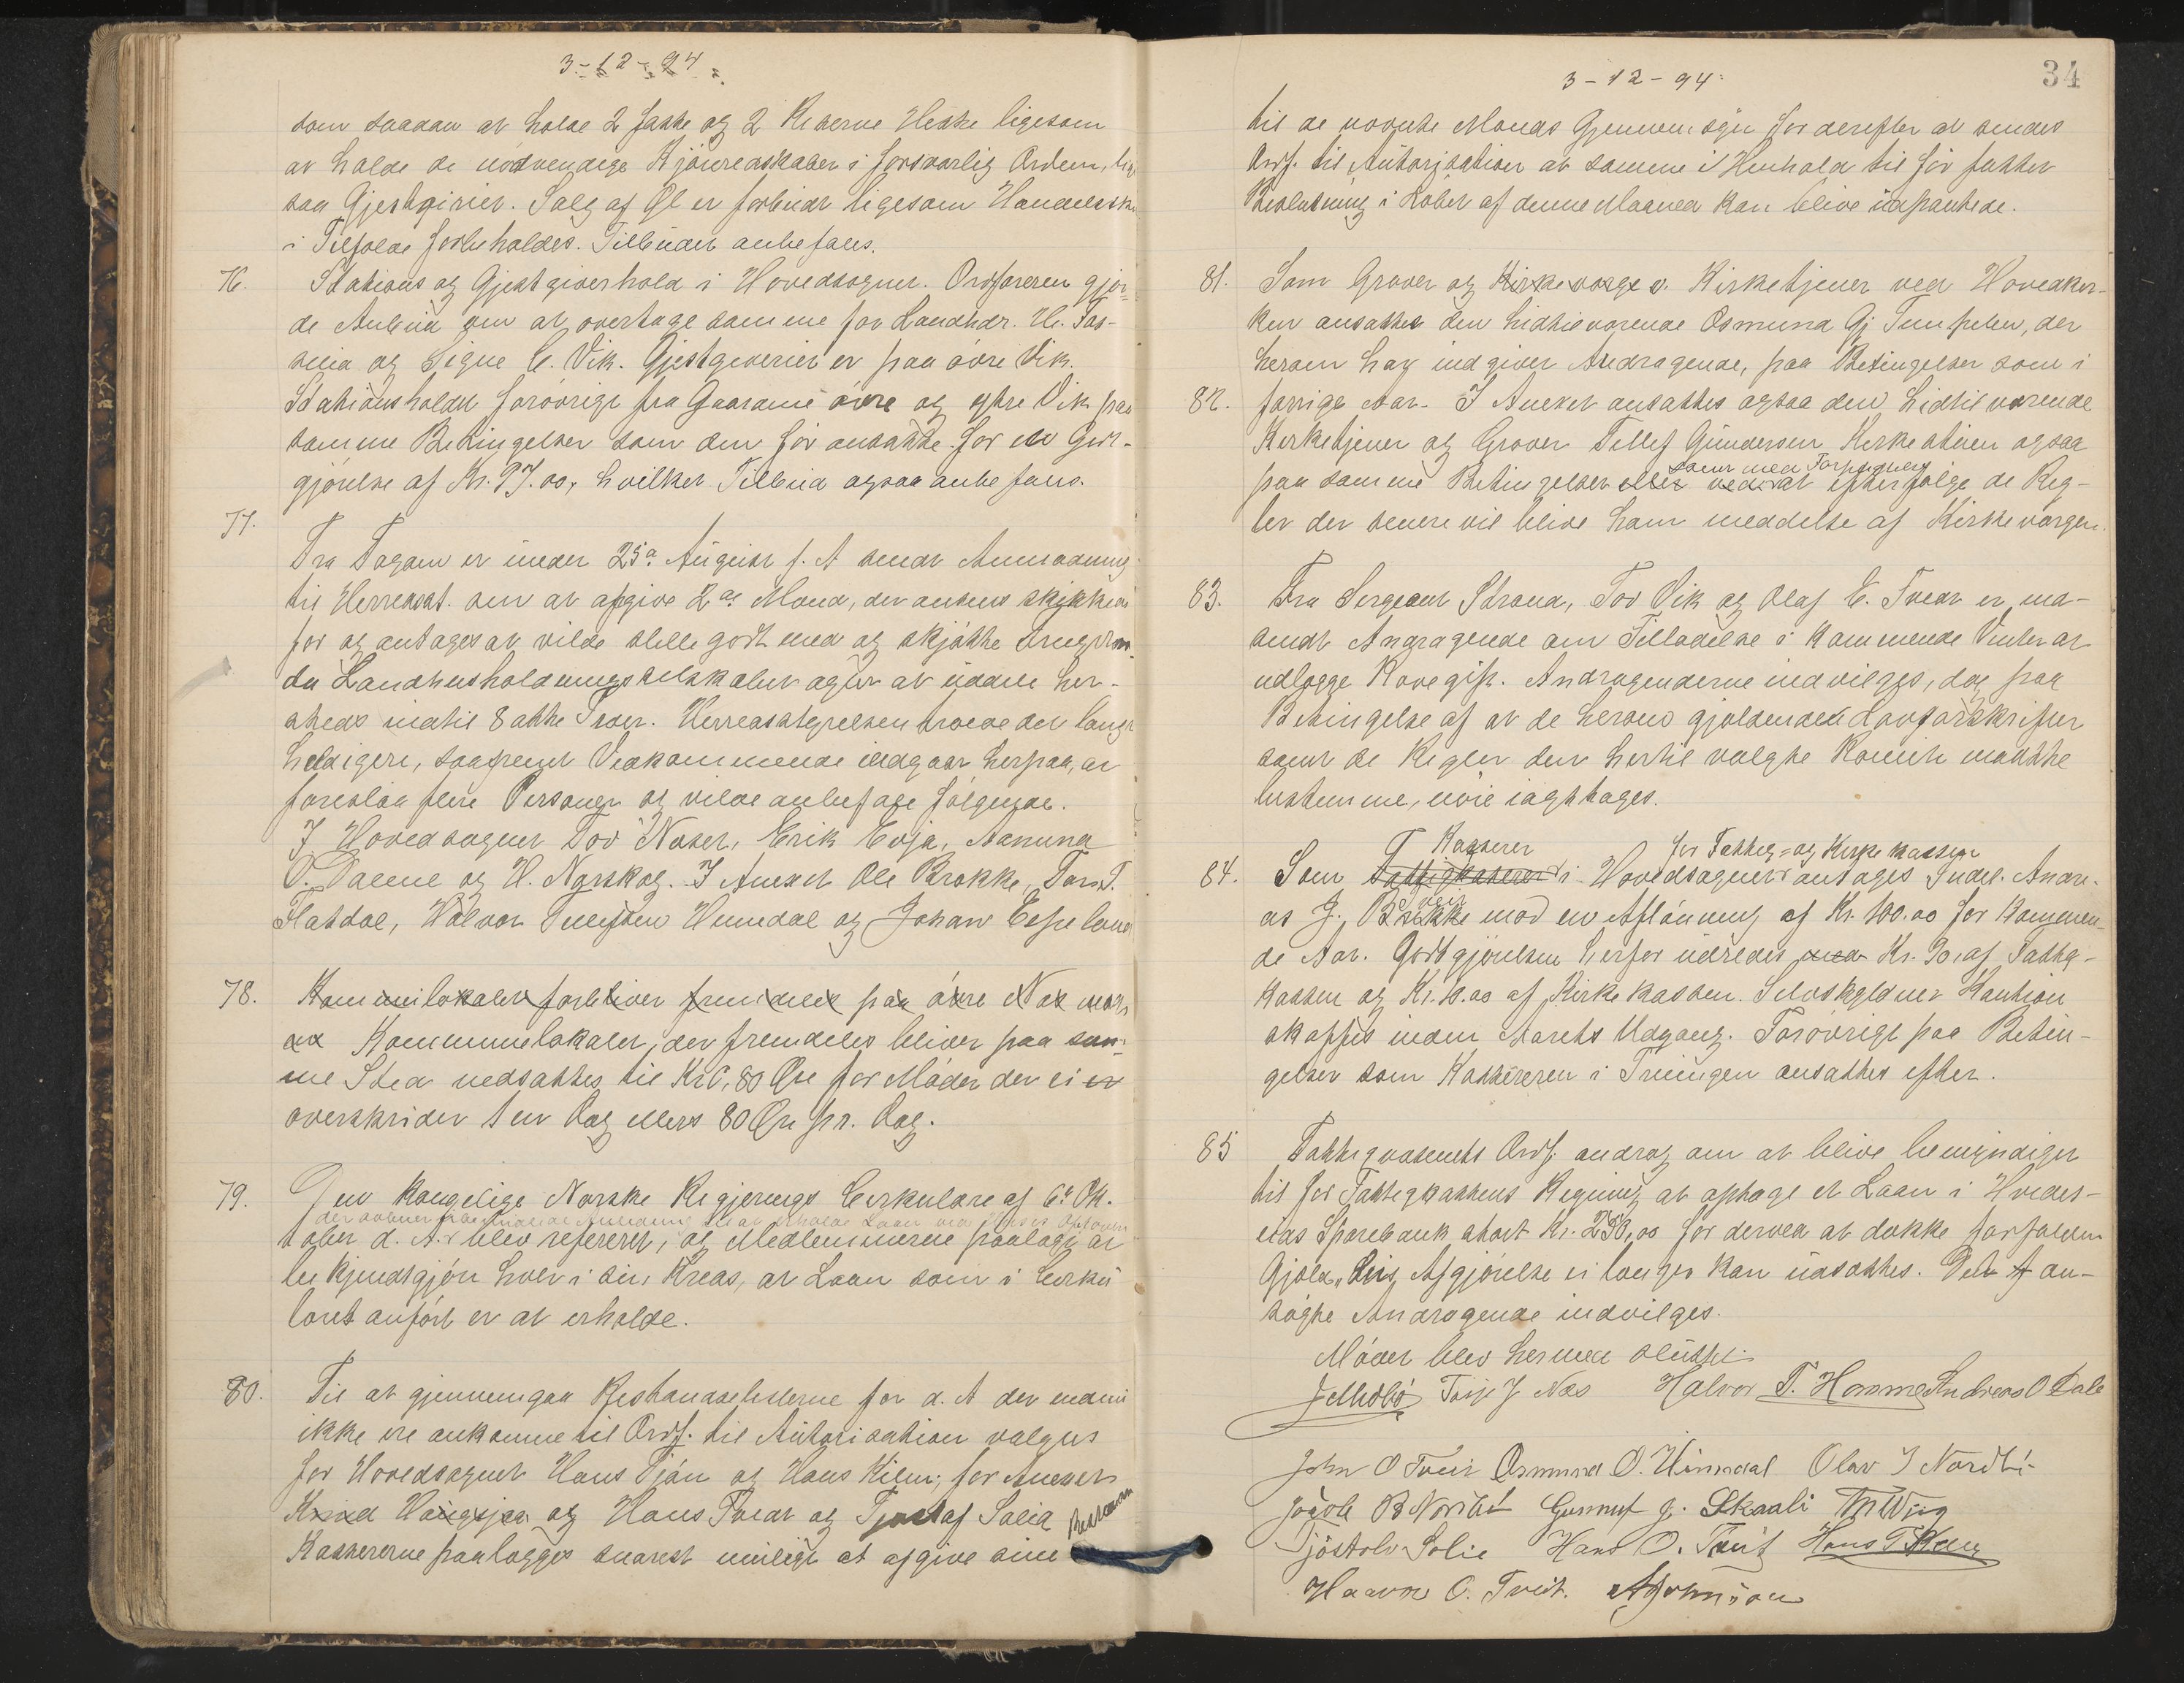 3-12-94
som saadan at holde 2 faste og 2 Reserve Heste ligesom
at holde de nödvendige Kjöreredskaber i forsvarlig Orden, lige
saa Gjestgiveri. Salg af Öl er forbudt ligesom Handelssk
i Tilfælde forbeholdes. Tilbudet anbefales.
76. Stations og Gjestgiverhold i Hovedsognet. Ordföreren gjor-
de Anbud om at overtage samme for Landhdr. H. Tas-
seia og Signe E. Vik. Gjestgiveriet er paa övre Vik.
Stationsholdet forövrigt fra Gaardene övre og ytre Vik paa
samme Betingelser som den för ansatte for en Godt-
gjörelse af Kr. 97.00, hvilket Tilbud ogsaa anbefales.
77.
Fra Fogden er under 25de August d. A sendt Anmodning
til Herredsst. om at opgive 2de Mænd, der ansees skikkede
for og antages at vilde stelle godt med og skjötte Frugttrær
da Landhusholdningsselskabet agter at uddele her-
steds indtil 8 otte Trær. Herredsstyrelsen troede det langt
heldigere, saafremt Vedkommende indgaar herpaa, at
foreslaa flere Personer og vilde anbefale fölgende.
I Hovedsognet Tov Næset, Erik Evja, Aanund
O. Dalene og H. Norskog. I Annexet Ole Brokke, Tor T.
Flatdal, Halvor Tellefsen Heimdal og Johan Espeland
78. Kommunelokalet forbliver fremdeles paa övre Næs mod
ad Kommunelokalet, der fremdeles bliver paa sam-
me Sted nedsattes til Kr 0,80 Öre for Möder der ei er
overskrider 1 en Dag ellers 80 Öre pr. Dag.
79. Den kongelige Norske Regjerings Cirkulære af 6te Ok-
tober d. A. blev refereret, og Medlemmerne paalagt at
bekjendtgjöre hver i sin Kreds, at Laan som i Cirku
læret anfört er at erholde.
80. Til at gjennemgaa Restancelisterne for d. A der endnu
ikke ere ankomne til Ordf. til Autorisation valgtes
for Hovedsognet Hans Tjön og Hans Kilen, for Annexet
Knud Haugsjaa og Hans Tveit og Tjostolf Solid
Kassererne paalægges snarest muligt at afgive sine Restancer
34
3-12-94
til de nævnte Mænds Gjennemsyn for derefter at sendes
Ordf. til Autorisation at samme i Henhold til för fattet
Beslutning i Löbet af denne Maaned kan blive udpantede.
81. Som Graver og Kirkeværge v. Kirketjener ved Hovedkir-
ken ansattes den hidtilværende Osmund Gj Tunheim, der
herom har indgivet Andragende, paa Betingelser som i
82. forrige Aar. I Annexet ansattes ogsaa den hidtilværende
Kirketjener og Graver Tellef Gundersen Kirkestöen ogsaa
samt med Forpligtelse
paa samme Betingelser eller ved at efterfölge de Reg-
ler der senere vil blive ham meddelte af Kirkeværgen.
83. Fra Sergeant Strand, Tov Vik og Olaf E. Tveit er ind-
sendt Andragende om Tilladelse i kommende Vinter at
udlægge Rovgift. Andragenderne indvilges, dog paa
Betingelse af at de herom gjældende Lovforskrifter
samt de Regler den hertil valgte Komite maatte
bestemme, nöie iagttages.
Kasserer for Fattig- og Kirkekassen
84. Som Fattigkasserer i Hovedsognet antages Indl. Andre-
as J. Brokke mod en Aflönning af Kr. 100.00 for kommen-
de Aar. Godtgjörelsen herfor udredes med Kr. 90, af Fattig-
kassen og Kr. 10.00 af Kirkekassen. Selvskyldner Kaution
skaffes inden Aarets Udgang. Forövrigt paa Betin-
gelser som Kassereren i Treungen ansattes efter.
85 Fattigvæsenets Ordf. androg om at blive bemyndiget
til for Fattigkassens Regning at optage et Laan i Hvides-
eids Sparebank stort Kr. 250,00 for derved at dække forfalden
Gjæld, hvis Afgjörelse ei længer kan udsættes. Det an-
sögte Andragende indvilges.
Mödet blev hermed sluttet.
J Midbö Tarje J Næs Halvor T. Homme Andreas O Dale
John O Tveit Osmund O. Heimdal Olav J Nordbö
Jacob B Nordbö Gunnuf J. Skaali
Tjöstolv Solie Hans O. Tveit Hans T
Haavor O. Tveit. A Johnson